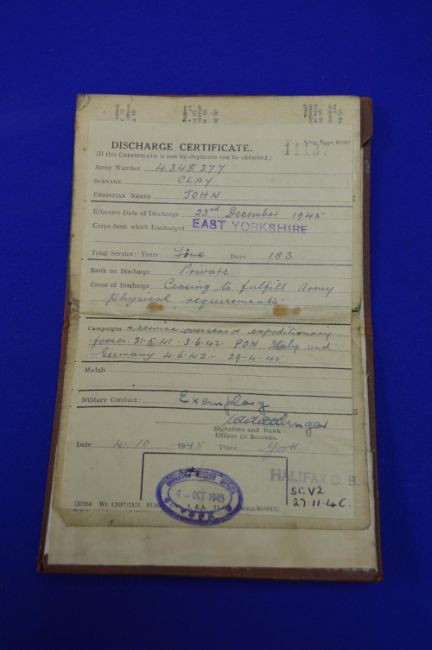 DISCHARGE CERTIFICATE.
(If this CERTIFICATE is lost no duplicate can be obtained.)
Army Number 4348377
SURNAME CLAY
CHRISTIAN NAMES JOHN
Effective Date of Discharge 23rd December 1945
Corps from which Discharged EAST YORKSHIRE
Total Service: Years Five Days 183
Rank on Discharge Private
Cause of Discharge Ceasing to fulfill Army
physical requirements.
Campaigns service overseas expeditionary
force 31.5.41 - 3.6.42 POW Italy and
Germany 4.6.42 - 29-4-45
Medals
Military Conduct: Exemplary
Signature and Rank
Officer i/c Records.
Date 4.10 1945 Place York
HALIFAX C.B.
4 - OCT 1945
YORK
SCV2
27-11-46.